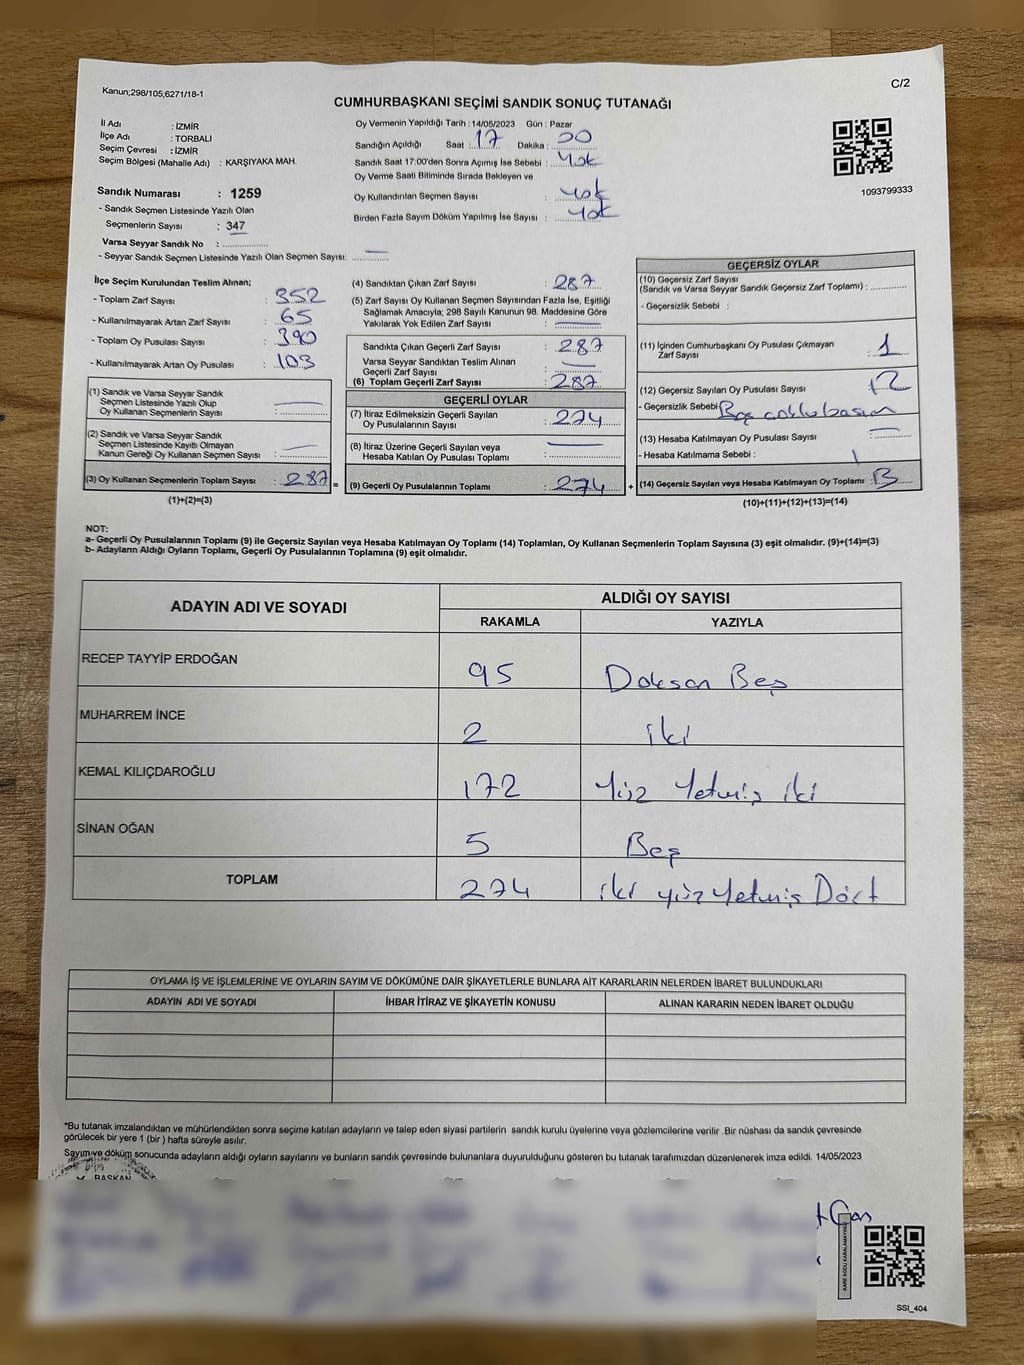 Kanun;298/105,6271/18-1
C/2
CUMHURBAŞKANI SEÇİMİ SANDIK SONUÇ TUTANAĞI
İl Adı : İZMİR
İlçe Adı : TORBALI
Seçim Çevresi : İZMİR
Seçim Bölgesi (Mahalle Adı) : KARŞIYAKA MAH.
Sandık Numarası : 1259
- Sandık Seçmen Listesinde Yazılı Olan
Seçmenlerin Sayısı : 347
Varsa Seyyar Sandık No : ..............
- Seyyar Sandık Seçmen Listesinde Yazılı Olan Seçmen Sayısı: —
Oy Vermenin Yapıldığı Tarih :14/05/2023 Gün : Pazar
Sandığın Açıldığı Saat : 17 Dakika : 00
Sandık Saat 17:00'den Sonra Açımış İse Sebebi : Yok
Oy Verme Saati Bitiminde Sırada Bekleyen ve
Oy Kullandırılan Seçmen Sayısı : Yok
Birden Fazla Sayım Döküm Yapılmış İse Sayısı : Yok
1093799333
İlçe Seçim Kurulundan Teslim Alınan;
- Toplam Zarf Sayısı : 352
- Kullanılmayarak Artan Zarf Sayısı : 65
- Toplam Oy Pusulası Sayısı : 390
- Kullanılmayarak Artan Oy Pusulası : 103
(1) Sandık ve Varsa Seyyar Sandık
Seçmen Listesinde Yazılı Olup
Oy Kullanan Seçmenlerin Sayısı : —
(2) Sandık ve Varsa Seyyar Sandık
Seçmen Listesinde Kayıtlı Olmayan
Kanun Gereği Oy Kullanan Seçmen Sayısı : —
(3) Oy Kullanan Seçmenlerin Toplam Sayısı : 287 =
(1)+(2)=(3)
(4) Sandıktan Çıkan Zarf Sayısı : 287
(5) Zarf Sayısı Oy Kullanan Seçmen Sayısından Fazla İse, Eşitliği
Sağlamak Amacıyla; 298 Sayılı Kanunun 98. Maddesine Göre
Yakılarak Yok Edilen Zarf Sayısı : —
Sandıkta Çıkan Geçerli Zarf Sayısı : 287
Varsa Seyyar Sandıktan Teslim Alınan
Geçerli Zarf Sayısı : —
(6) Toplam Geçerli Zarf Sayısı : 287
GEÇERLİ OYLAR
(7) İtiraz Edilmeksizin Geçerli Sayılan
Oy Pusulalarının Sayısı : 274
(8) İtiraz Üzerine Geçerli Sayılan veya
Hesaba Katılan Oy Pusulası Toplamı : —
(9) Geçerli Oy Pusulalarının Toplamı : 274 +
GEÇERSİZ OYLAR
(10) Geçersiz Zarf Sayısı
(Sandık ve Varsa Seyyar Sandık Geçersiz Zarf Toplamı) : ............
- Geçersizlik Sebebi :
(11) İçinden Cumhurbaşkanı Oy Pusulası Çıkmayan
Zarf Sayısı : 1
(12) Geçersiz Sayılan Oy Pusulası Sayısı : 12
- Geçersizlik Sebebi Boş
(13) Hesaba Katılmayan Oy Pusulası Sayısı : —
- Hesaba Katılmama Sebebi :
(14) Geçersiz Sayılan veya Hesaba Katılmayan Oy Toplamı : 13
(10)+(11)+(12)+(13)=(14)
NOT:
a- Geçerli Oy Pusulalarının Toplamı (9) ile Geçersiz Sayılan veya Hesaba Katılmayan Oy Toplamı (14) Toplamları, Oy Kullanan Seçmenlerin Toplam Sayısına (3) eşit olmalıdır. (9)+(14)=(3)
b- Adayların Aldığı Oyların Toplamı, Geçerli Oy Pusulalarının Toplamına (9) eşit olmalıdır.
ADAYIN ADI VE SOYADI ALDIĞI OY SAYISI
RAKAMLA YAZIYLA
RECEP TAYYİP ERDOĞAN 95 Doksan Beş
MUHARREM İNCE 2 iki
KEMAL KILIÇDAROĞLU 172 Yüz Yetmiş iki
SİNAN OĞAN 5 Beş
TOPLAM 274 iki yüz Yetmiş Dört
OYLAMA İŞ VE İŞLEMLERİNE VE OYLARIN SAYIM VE DÖKÜMÜNE DAİR ŞİKAYETLERLE BUNLARA AİT KARARLARIN NELERDEN İBARET BULUNDUKLARI
ADAYIN ADI VE SOYADI İHBAR İTİRAZ VE ŞİKAYETİN KONUSU ALINAN KARARIN NEDEN İBARET OLDUĞU
*Bu tutanak imzalandıktan ve mühürlendikten sonra seçime katılan adayların ve talep eden siyasi partilerin sandık kurulu üyelerine veya gözlemcilerine verilir .Bir nüshası da sandık çevresinde
görülecek bir yere 1 (bir ) hafta süreyle asılır.
Sayım ve döküm sonucunda adayların aldığı oyların sayılarını ve bunların sandık çevresinde bulunanlara duyurulduğunu gösteren bu tutanak tarafımızdan düzenlenerek imza edildi. 14/05/2023
BAŞKAN
SSI_404